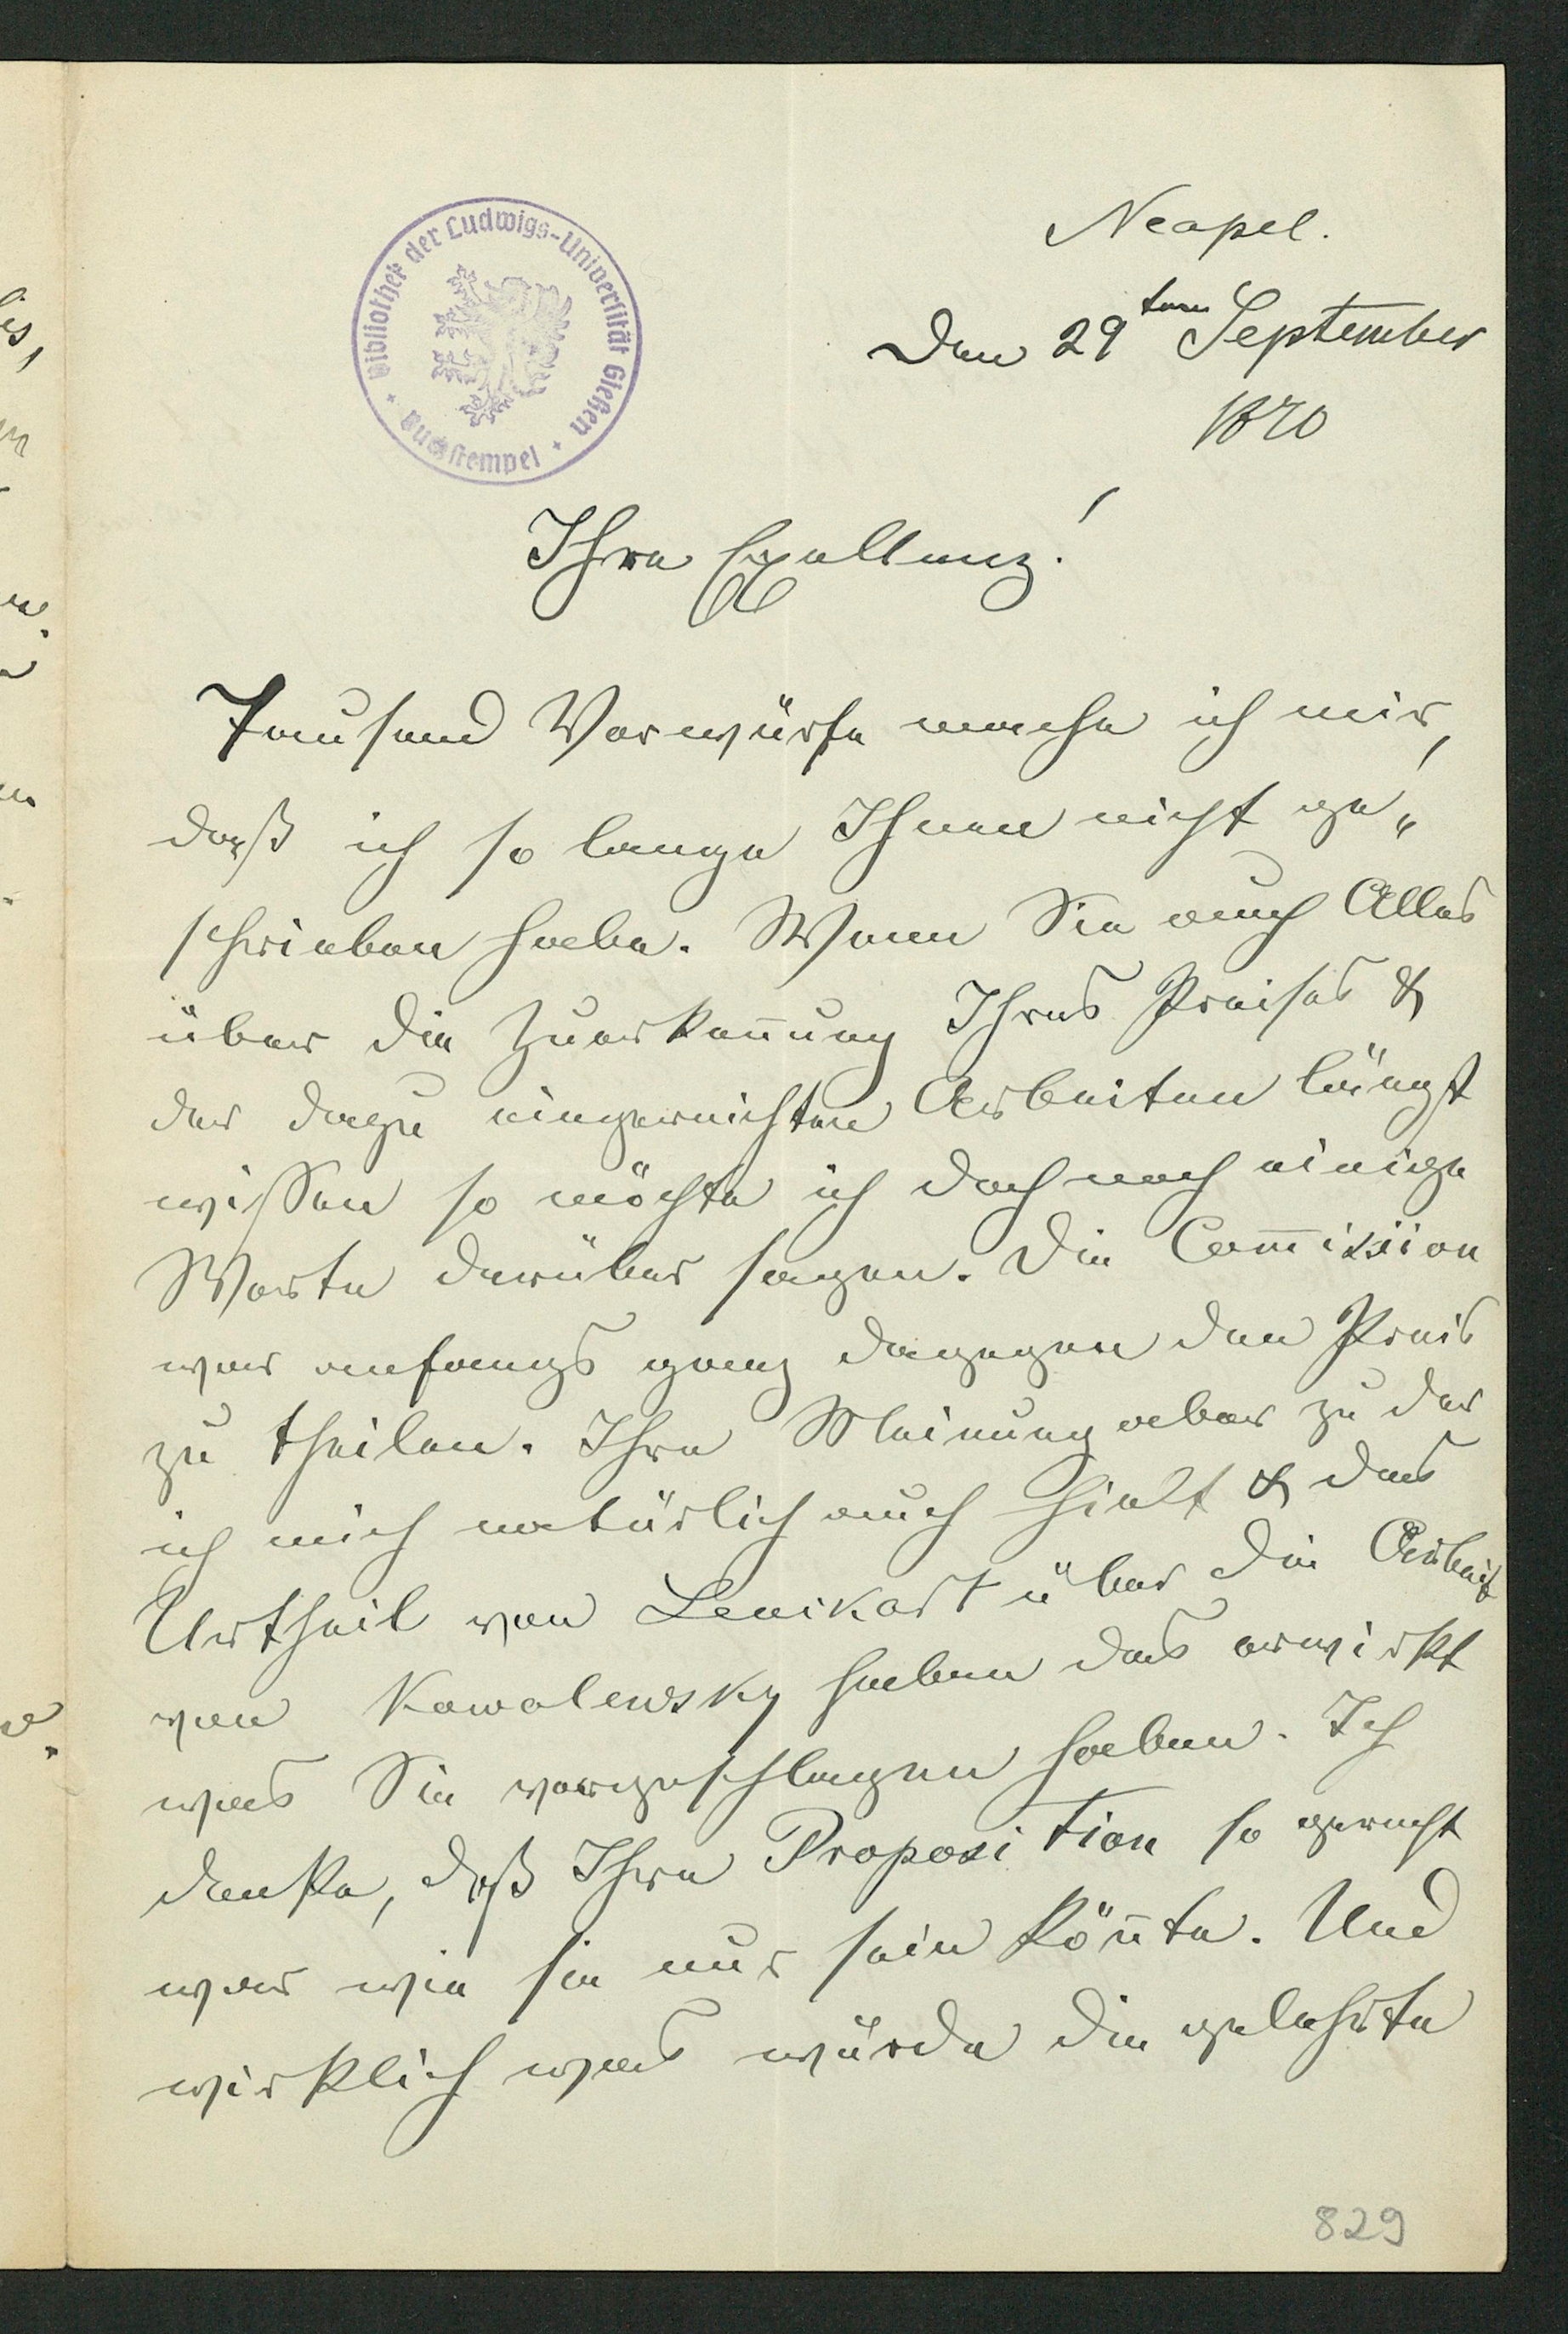 Neapel.
Den 29ten September
1870
Bibliothek der Ludwigs-Universität Gießen
Buchstempel
Ihre Exellenz!
Tausend Vorwürfe mache ich mir,
daß ich so lange Ihnen nicht ge„
schrieben habe. Wenn Sie auch Alles
über die Zuerkeñung Ihres Preises &
der dazu eingereichten Arbeiten längst
wissen so möchte ich doch noch einige
Worte darüber sagen. Die Com̄ission
war anfangs ganz dagegen den Preis
zu theilen. Ihre Meinung aber zu der
ich mich natürlich auch hielt & das
Urtheil von Leuikart über die Arbeit
von Kowalewsky haben das erwirkt
was Sie vorgeschlagen haben. Ich
denke, daß Ihre Proposition so gerecht
war wie sie nur sein köñte. Und
wirklich was würde die gelehrte
829